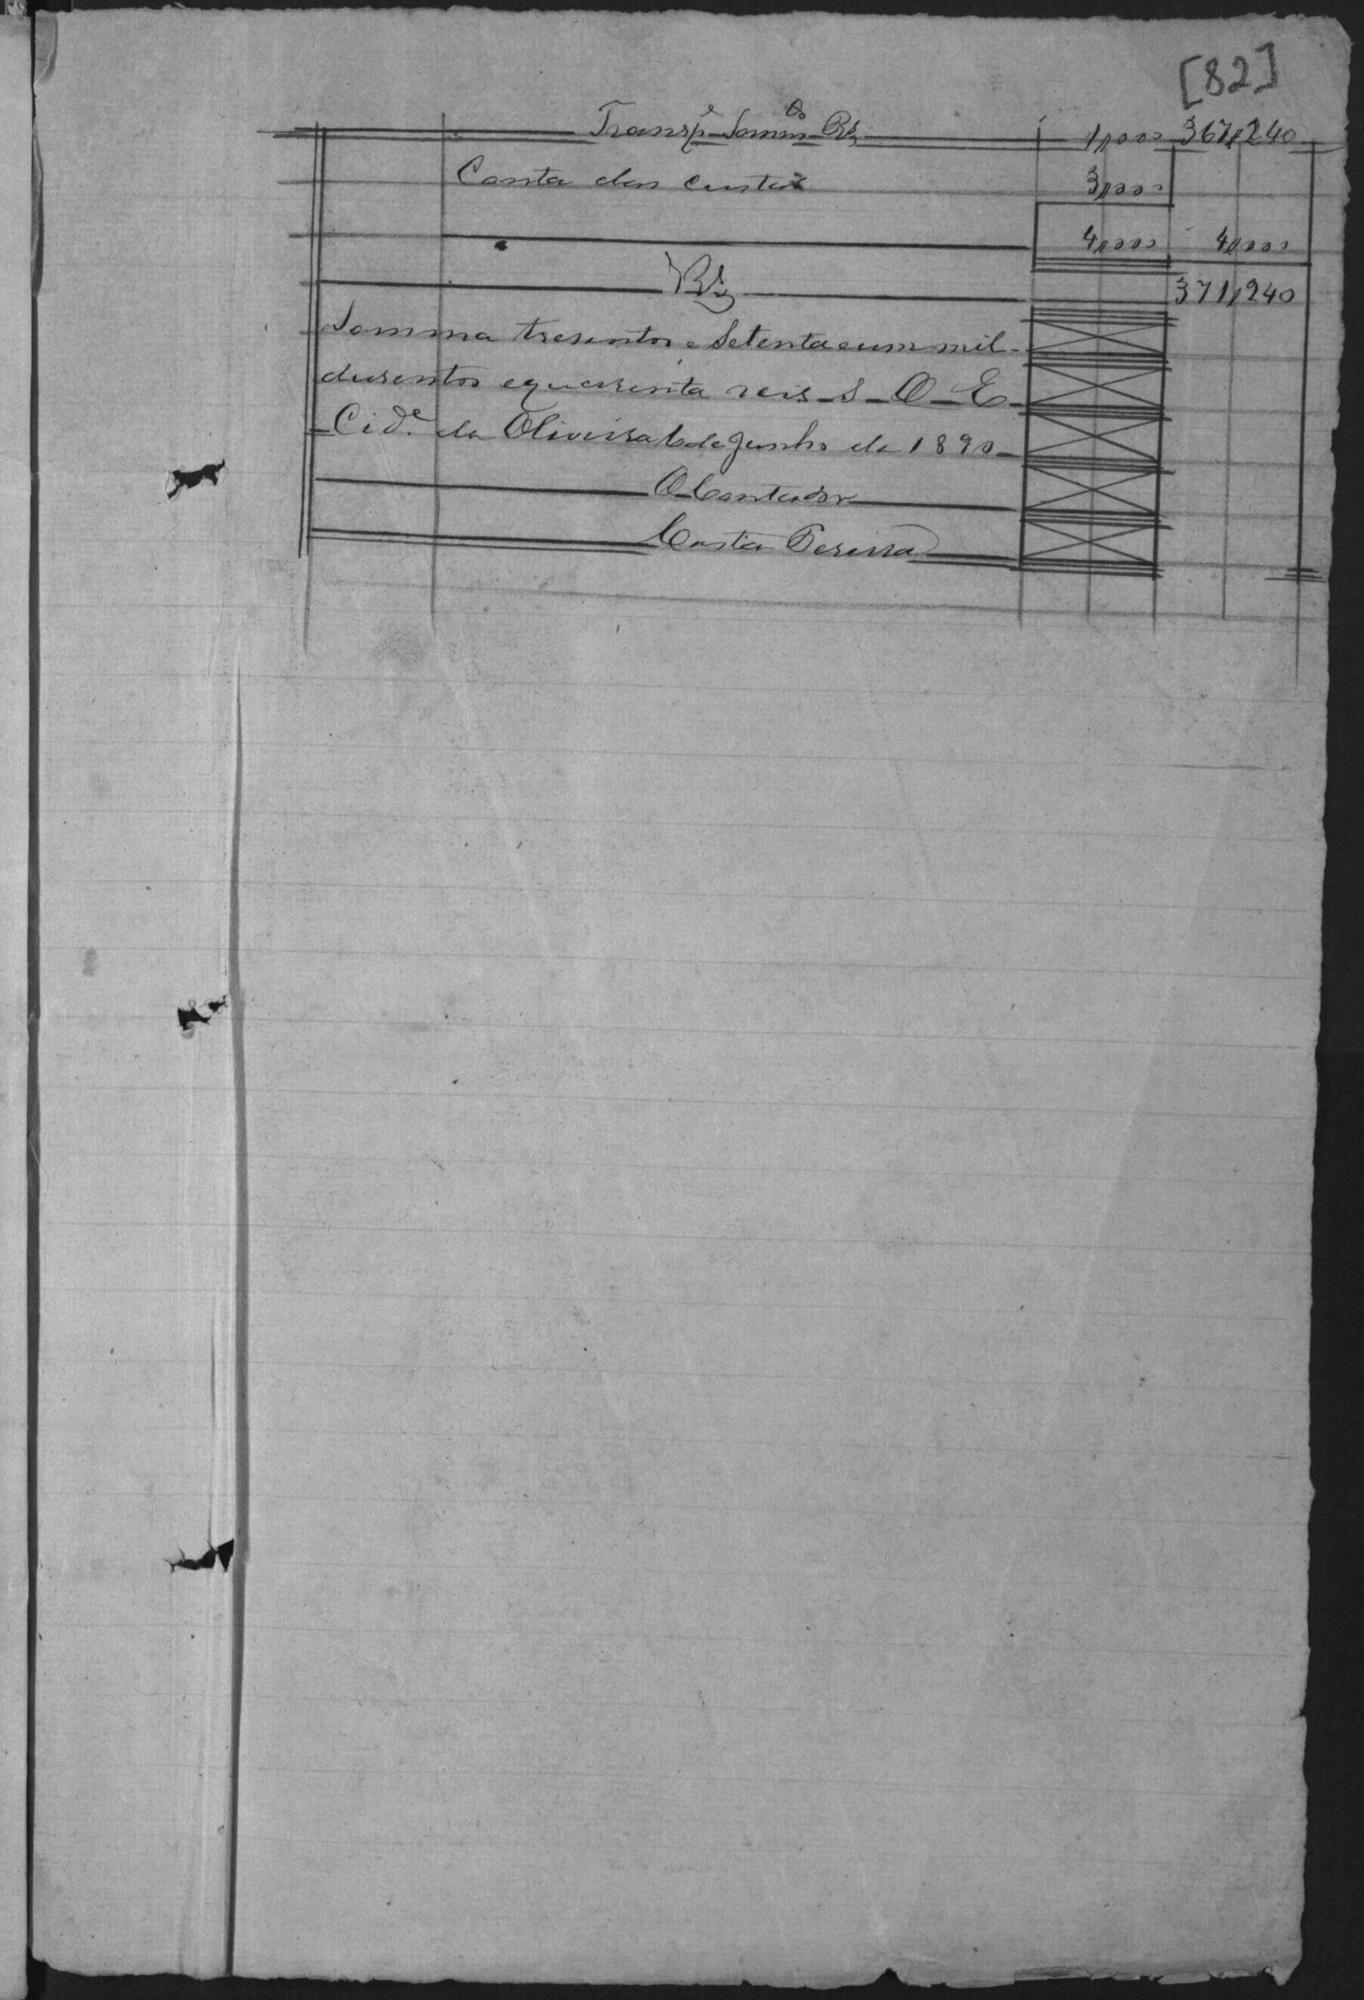 [82]
Transp.e Somm.as Rs 1,000 367,240
Conta das custas 3,000
4,000 4,000
Rs 371,240
Somma tresentos e Setenta e um mil
dusentos e quarenta reis S O E
Cid.e da Oliveira 6 de Junho de 1890
O Contador
Costa Pereira